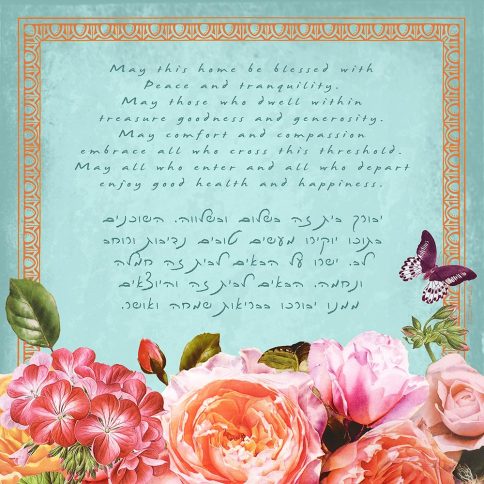 May this home be blessed with
Peace and tranquility.
May those who dwell within
treasure goodness and generosity.
May comfort and compassion
embrace all who cross this threshold.
May all who enter and all who depart
enjoy good health and happiness.
יבורך בית זה בשלום ובשלווה. השוכנים
בתוכו יוקירו מעשים טובים נדיבות ורוחב
לב. ישרו על הבאים לבית זה חמלה
ונחמה. הבאים לבית זה והיוצאים
ממנו יבורכו בבריאות שמחה ואושר.